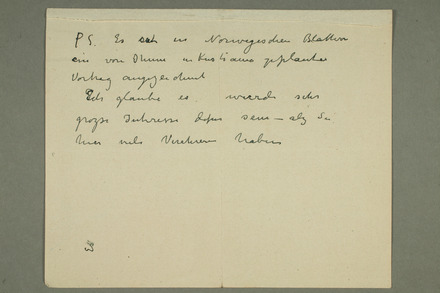 P.S. Es in Norwegischen Blättern
ein von Ihnen in Kristiania geplanter
Vortrag angezeichnet
Ich glaube es würde sehr
grosse Interesse dafür sein – als Sie
hier viele Verehrer haben